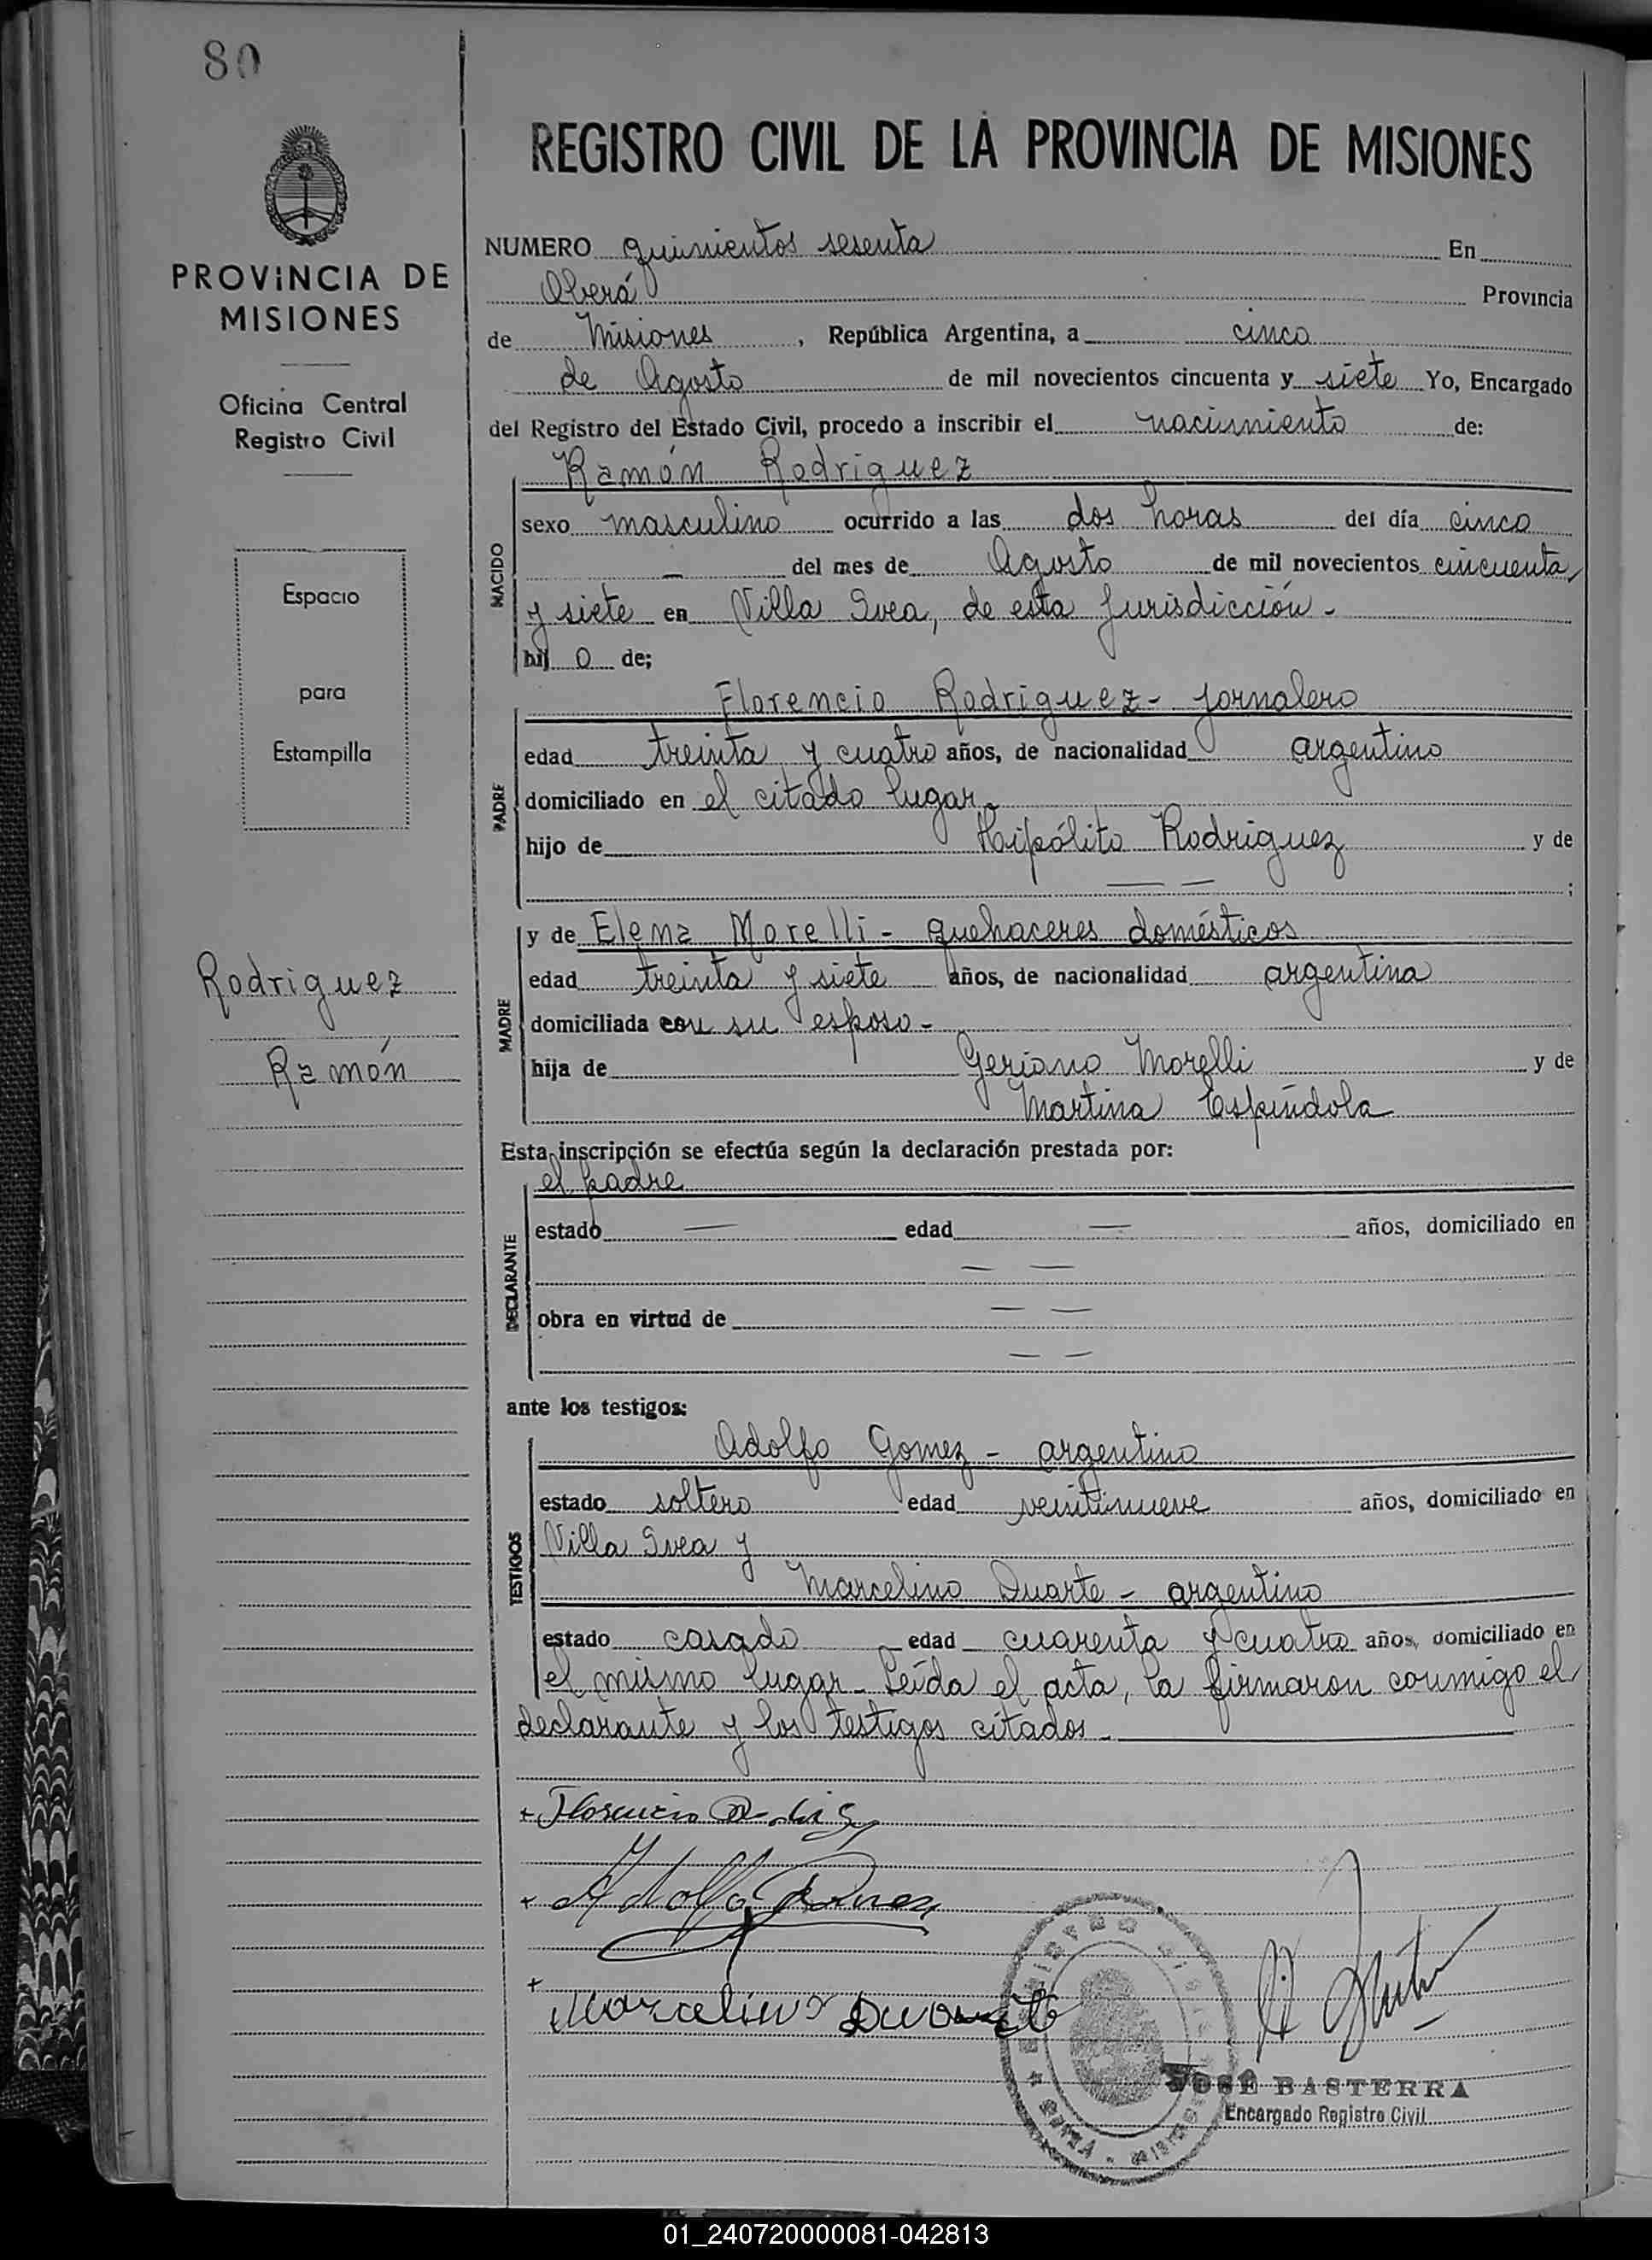 80
REGISTRO CIVIL DE LA PROVINCIA DE MISIONES
PROVINCIA DE
MISIONES
Oficina Central
Registro Civil
Espacio
para
Estampilla
Rodriguez
Ramón
NUMERO quinientos sesenta En
Oberá Provincia
de Misiones, República Argentina, a cinco
de Agosto de mil novecientos cincuenta y siete Yo, Encargado
del Registro del Estado Civil, procedo a inscribir el nacimiento de:
NACIDO
Ramón Rodriguez
sexo masculino ocurrido a las dos horas del día cinco
— del mes de Agosto de mil novecientos cincuenta
y siete en Villa Svea, de esta Jurisdicción -
hij o de;
PADRE
Florencio Rodriguez - jornalero
edad treinta y cuatro años, de nacionalidad argentino
domiciliado en el citado lugar -
hijo de Hipólito Rodriguez y de
— — ;
MADRE
y de Elena Morelli - quehaceres domésticos
edad treinta y siete años, de nacionalidad argentina
domiciliada con su esposo -
hija de Morelli y de
Martina Espíndola
Esta inscripción se efectúa según la declaración prestada por:
DECLARANTE
el padre
estado — edad — años, domiciliado en
— —
obra en virtud de — —
— —
ante los testigos:
TESTIGOS
Adolfo Gomez - argentino
estado soltero edad veintinueve años, domiciliado en
Villa Svea y
Marcelino Duarte - argentino
estado casado edad cuarenta y cuatro años, domiciliado en
el mismo lugar - Leída el acta, la firmaron conmigo el
declarante y los testigos citados -
+ Florencio
+ Adolfo Gomez
+
Marcelino Duarte
JOSÉ BASTERRA
Encargado Registro Civil
01_240720000081-042813